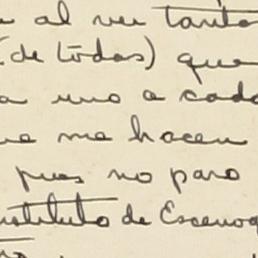 al ver tantas
(de todas) que
uno a cada
me hacen
pues no paro
Instituto de Escenog